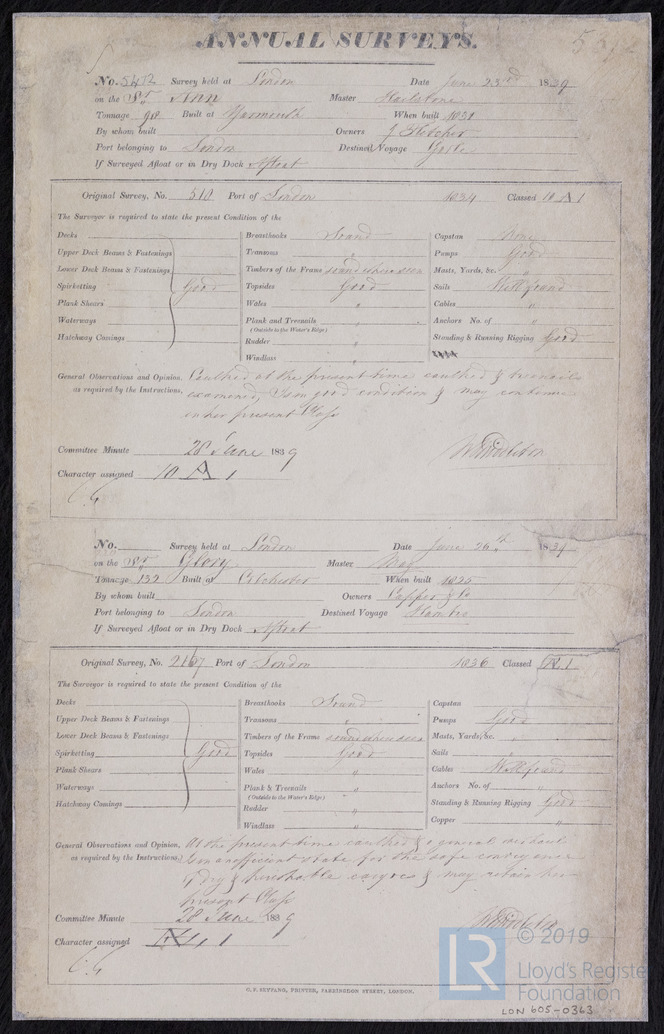 ANNUAL SURVEYS.
No. 5472 Survey held at London Date June 23rd 1839
on the Sr. Ann Master
Tonnage 98 Built at Yarmouth When built 1831
By whom built Owners J Fletcher
Port belonging to London Destined Voyage
If Surveyed Afloat or in Dry Dock Afloat
Original Survey, No. 510 Port of London 1834 Classed 10 A 1
The Surveyor is required to state the present Condition of the
Decks Breasthooks Sound Capstan
Upper Deck Beams & Fastenings Transoms " Pumps Good
Lower Deck Beams & Fastenings Timbers of the Frame sound where seen Masts, Yards, &c. "
Spirketting Good Topsides Good Sails Well found
Plank Shears Wales " Cables "
Waterways Plank and Treenails " Anchors No. of "
(Outside to the Water's Edge)
Hatchway Comings Rudder " Standing & Running Rigging Good
Windlass "
General Observations and Opinion, Caulked at the present time caulked & treenails
as required by the Instructions, examined, Is in good condition & may continue
in her present Class
Committee Minute 28 June 1839
Character assigned 10 A 1
No. Survey held at London Date June 26th 1839
on the Sr. Glory Master May
Tonnage 132 Built at Colchester When built 1825
By whom built Owners Capper & Co
Port belonging to London Destined Voyage Hambro
If Surveyed Afloat or in Dry Dock Afloat
Original Survey, No. 2167 Port of London 1836 Classed Æ 1
The Surveyor is required to state the present Condition of the
Decks Breasthooks Sound Capstan
Upper Deck Beams & Fastenings Transoms " Pumps Good
Lower Deck Beams & Fastenings Timbers of the Frame sound where seen Masts, Yards, &c. "
Spirketting Good Topsides Good Sails "
Plank Shears Wales " Cables Well found
Waterways Plank & Treenails " Anchors No. of "
(Outside to the Water's Edge)
Hatchway Comings Rudder " Standing & Running Rigging Good
Windlass " Copper "
General Observations and Opinion, At the present time caulked & a general overhaul
as required by the Instructions.) Is in an efficient state for the safe conveyance
of dry & perishable cargoes & may retain her
present Class
Committee Minute 28 June 1839
Character assigned Æ 1
G. F. SEYFANG, PRINTER, FARRINGDON STREET, LONDON.
LR © 2019
Lloyd's Register
Foundation
LDN 605-0363